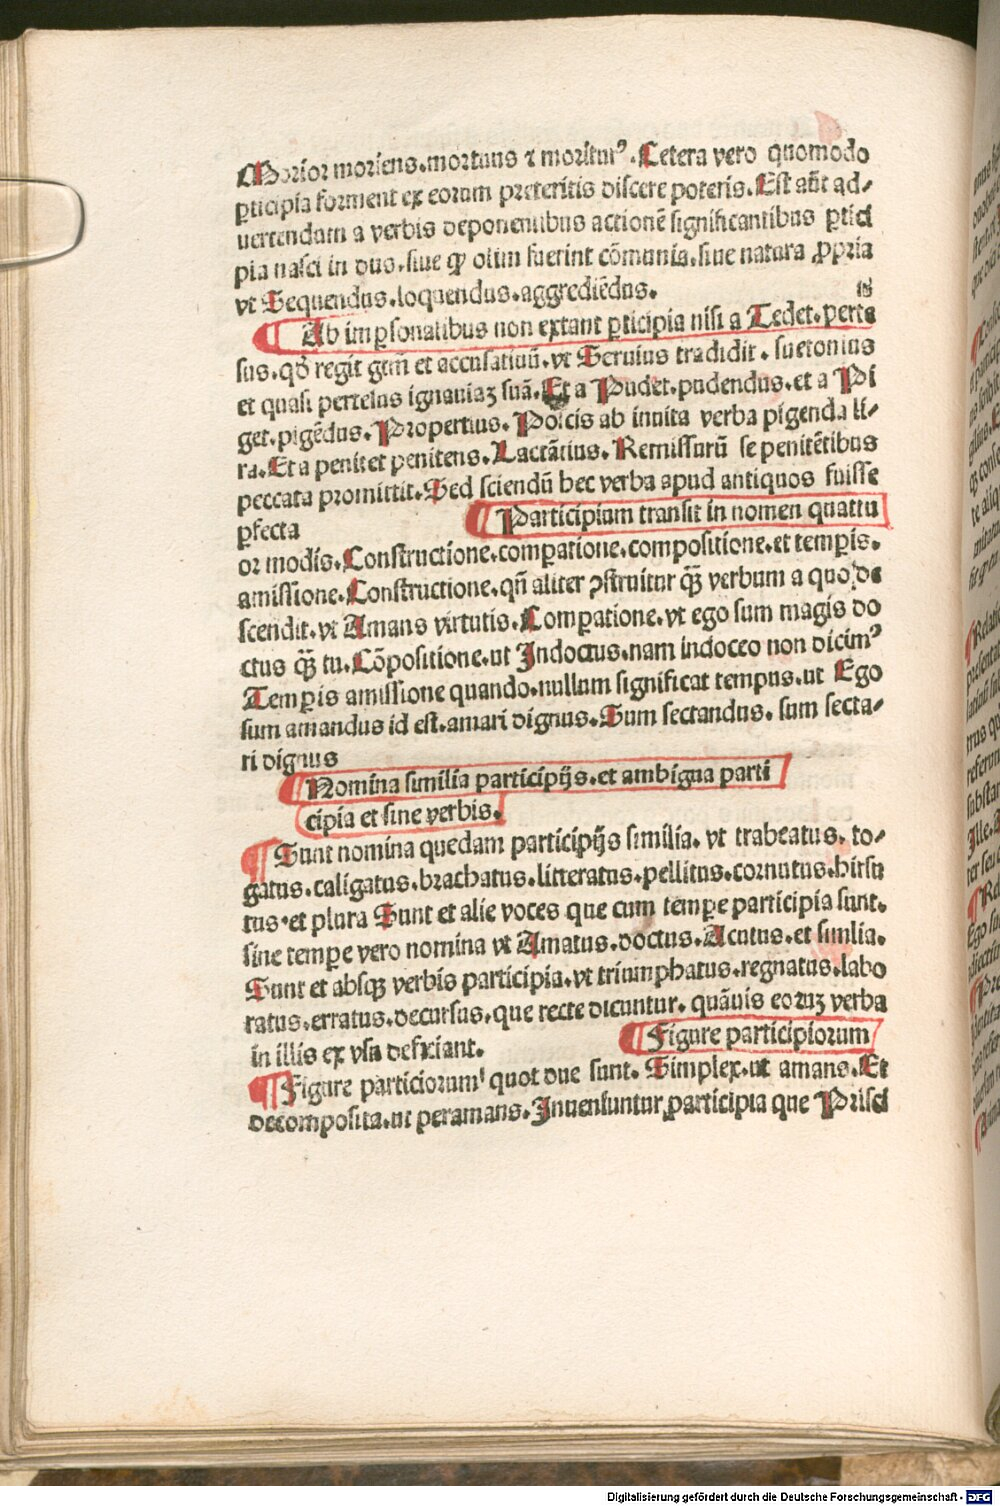 Morior moriens.mortuus ⁊ moriturꝰ. Cetera vero quomodo
ꝑticipia forment ex eorum preteritis discere poteris. Est aūt ad-
uertendum a verbis deponentibus actionē significantibus ꝑtici
pia nasci in dus.siue ꝙ olim fuerint cōmunia.siue natura ꝓpria
vt Sequendus.loquendus.aggrediēdus.
Ab imꝑsonalibus non extant ꝑticipia nisi a Tedet.perte
sus.qđ regit gtm̄ et accusatiuū.vt Seruius tradidit. suetonius
et quasi pertesus ignauiaꝫ suā. Et a Pudet.pudendus.et a Pi
get.pigēdus. Propertius. Poscis ab inuita verba pigenda li-
ra. Et a penitet penitens. Lactātius. Remissurū se penitētibus
peccata promittit. Sed sciendū hec verba apud antiquos fuisse
ꝑfecta
Participium transit in nomen quattu
or modis. Constructione.comꝑatione.compositione.et temꝑis.
amissione. Constructione.qn̄ aliter ꝯstruitur ꝙ̄ verbum a quo de
scendit.vt Amans virtutis. Comꝑatione.vt ego sum magis do
ctus ꝙ̄ tu. Cōpositione.ut Indoctus.nam indoceo non dicimꝰ
Temꝑis amissione quando.nullum significat tempus.ut Ego
sum amandus id est.amari dignus. Sum sectandus. sum secta-
ri dignus
Nomina similia participijs.et ambigua parti
cipia et sine verbis.
¶ Sunt nomina quedam participijs similia. vt trabeatus. to-
gatus.caligatus.brachatus.litteratus.pellitus.cornutus.hirsu
tus.et plura Sunt et alie voces que cum temꝑe participia sunt.
sine temꝑe vero nomina vt Amatus.doctus. Acutus.et similia.
Sunt et absqꝫ verbis participia.vt triumphatus.regnatus.labo
ratus.erratus.decursus.que recte dicuntur. quāuis eoruꝫ verba
in illis ex usu deficiant.
Figure participiorum
¶ Figure particiorum quot due sunt. Simplex.ut amans. Et
decomposita.ut peramans. Inueniuntur participia que Prisci
Digitalisierung gefördert durch die Deutsche Forschungsgemeinschaft - DFG